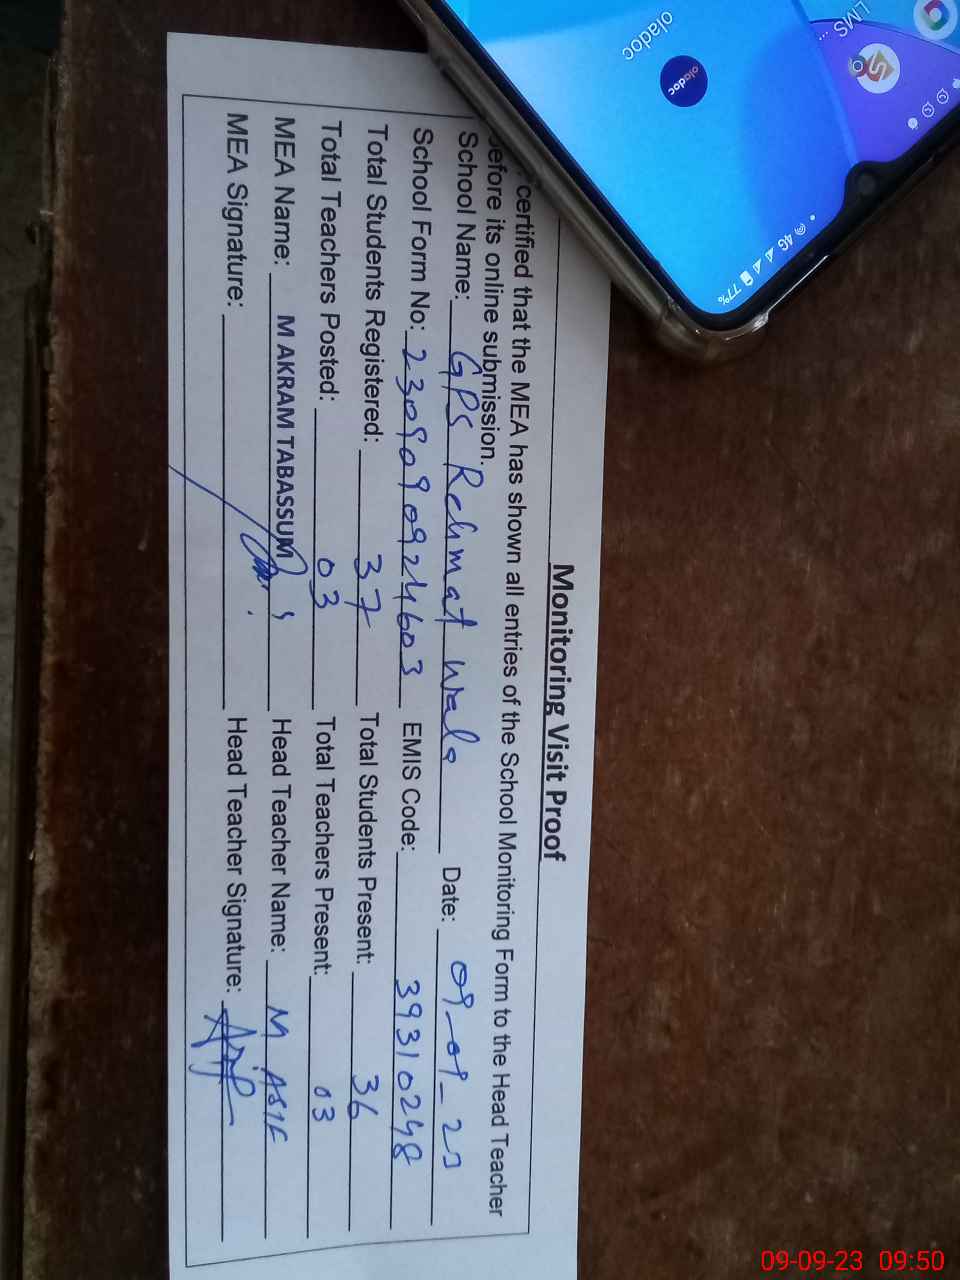 Monitoring Visit Proof
certified that the MEA has shown all entries of the School Monitoring Form to the Head Teacher
before its online submission.
School Name: GPS Rehmat Wala Date: 09-09-23
School Form No: 2309090924603 EMIS Code: 39310248
Total Students Registered: 37 Total Students Present: 36
Total Teachers Posted: 03 Total Teachers Present: 03
MEA Name: M AKRAM TABASSUM Head Teacher Name: M ASIF
MEA Signature: Head Teacher Signature: Asif
oladoc
oladoc
LMS ...
4G 77%
09-09-23 09:50